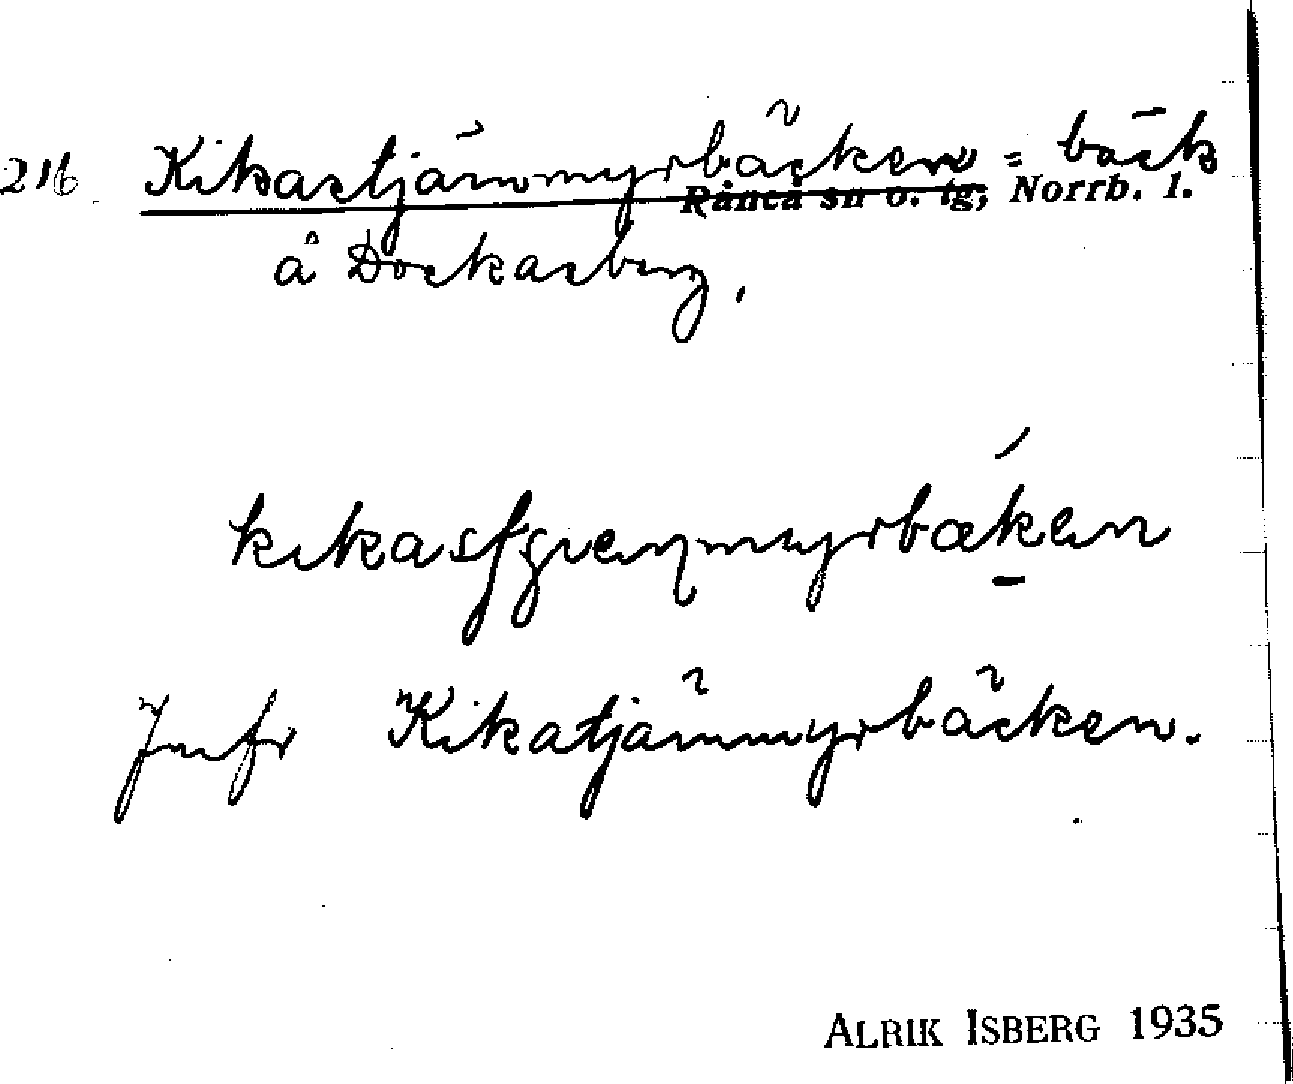 216 Kikastjärnmyrbäcken = bäck
Råneå sn o. tg, Norrb. l.
å Dockasberg.
Jmfr Kikatjärnmyrbäcken.
ALRIK ISBERG 1935